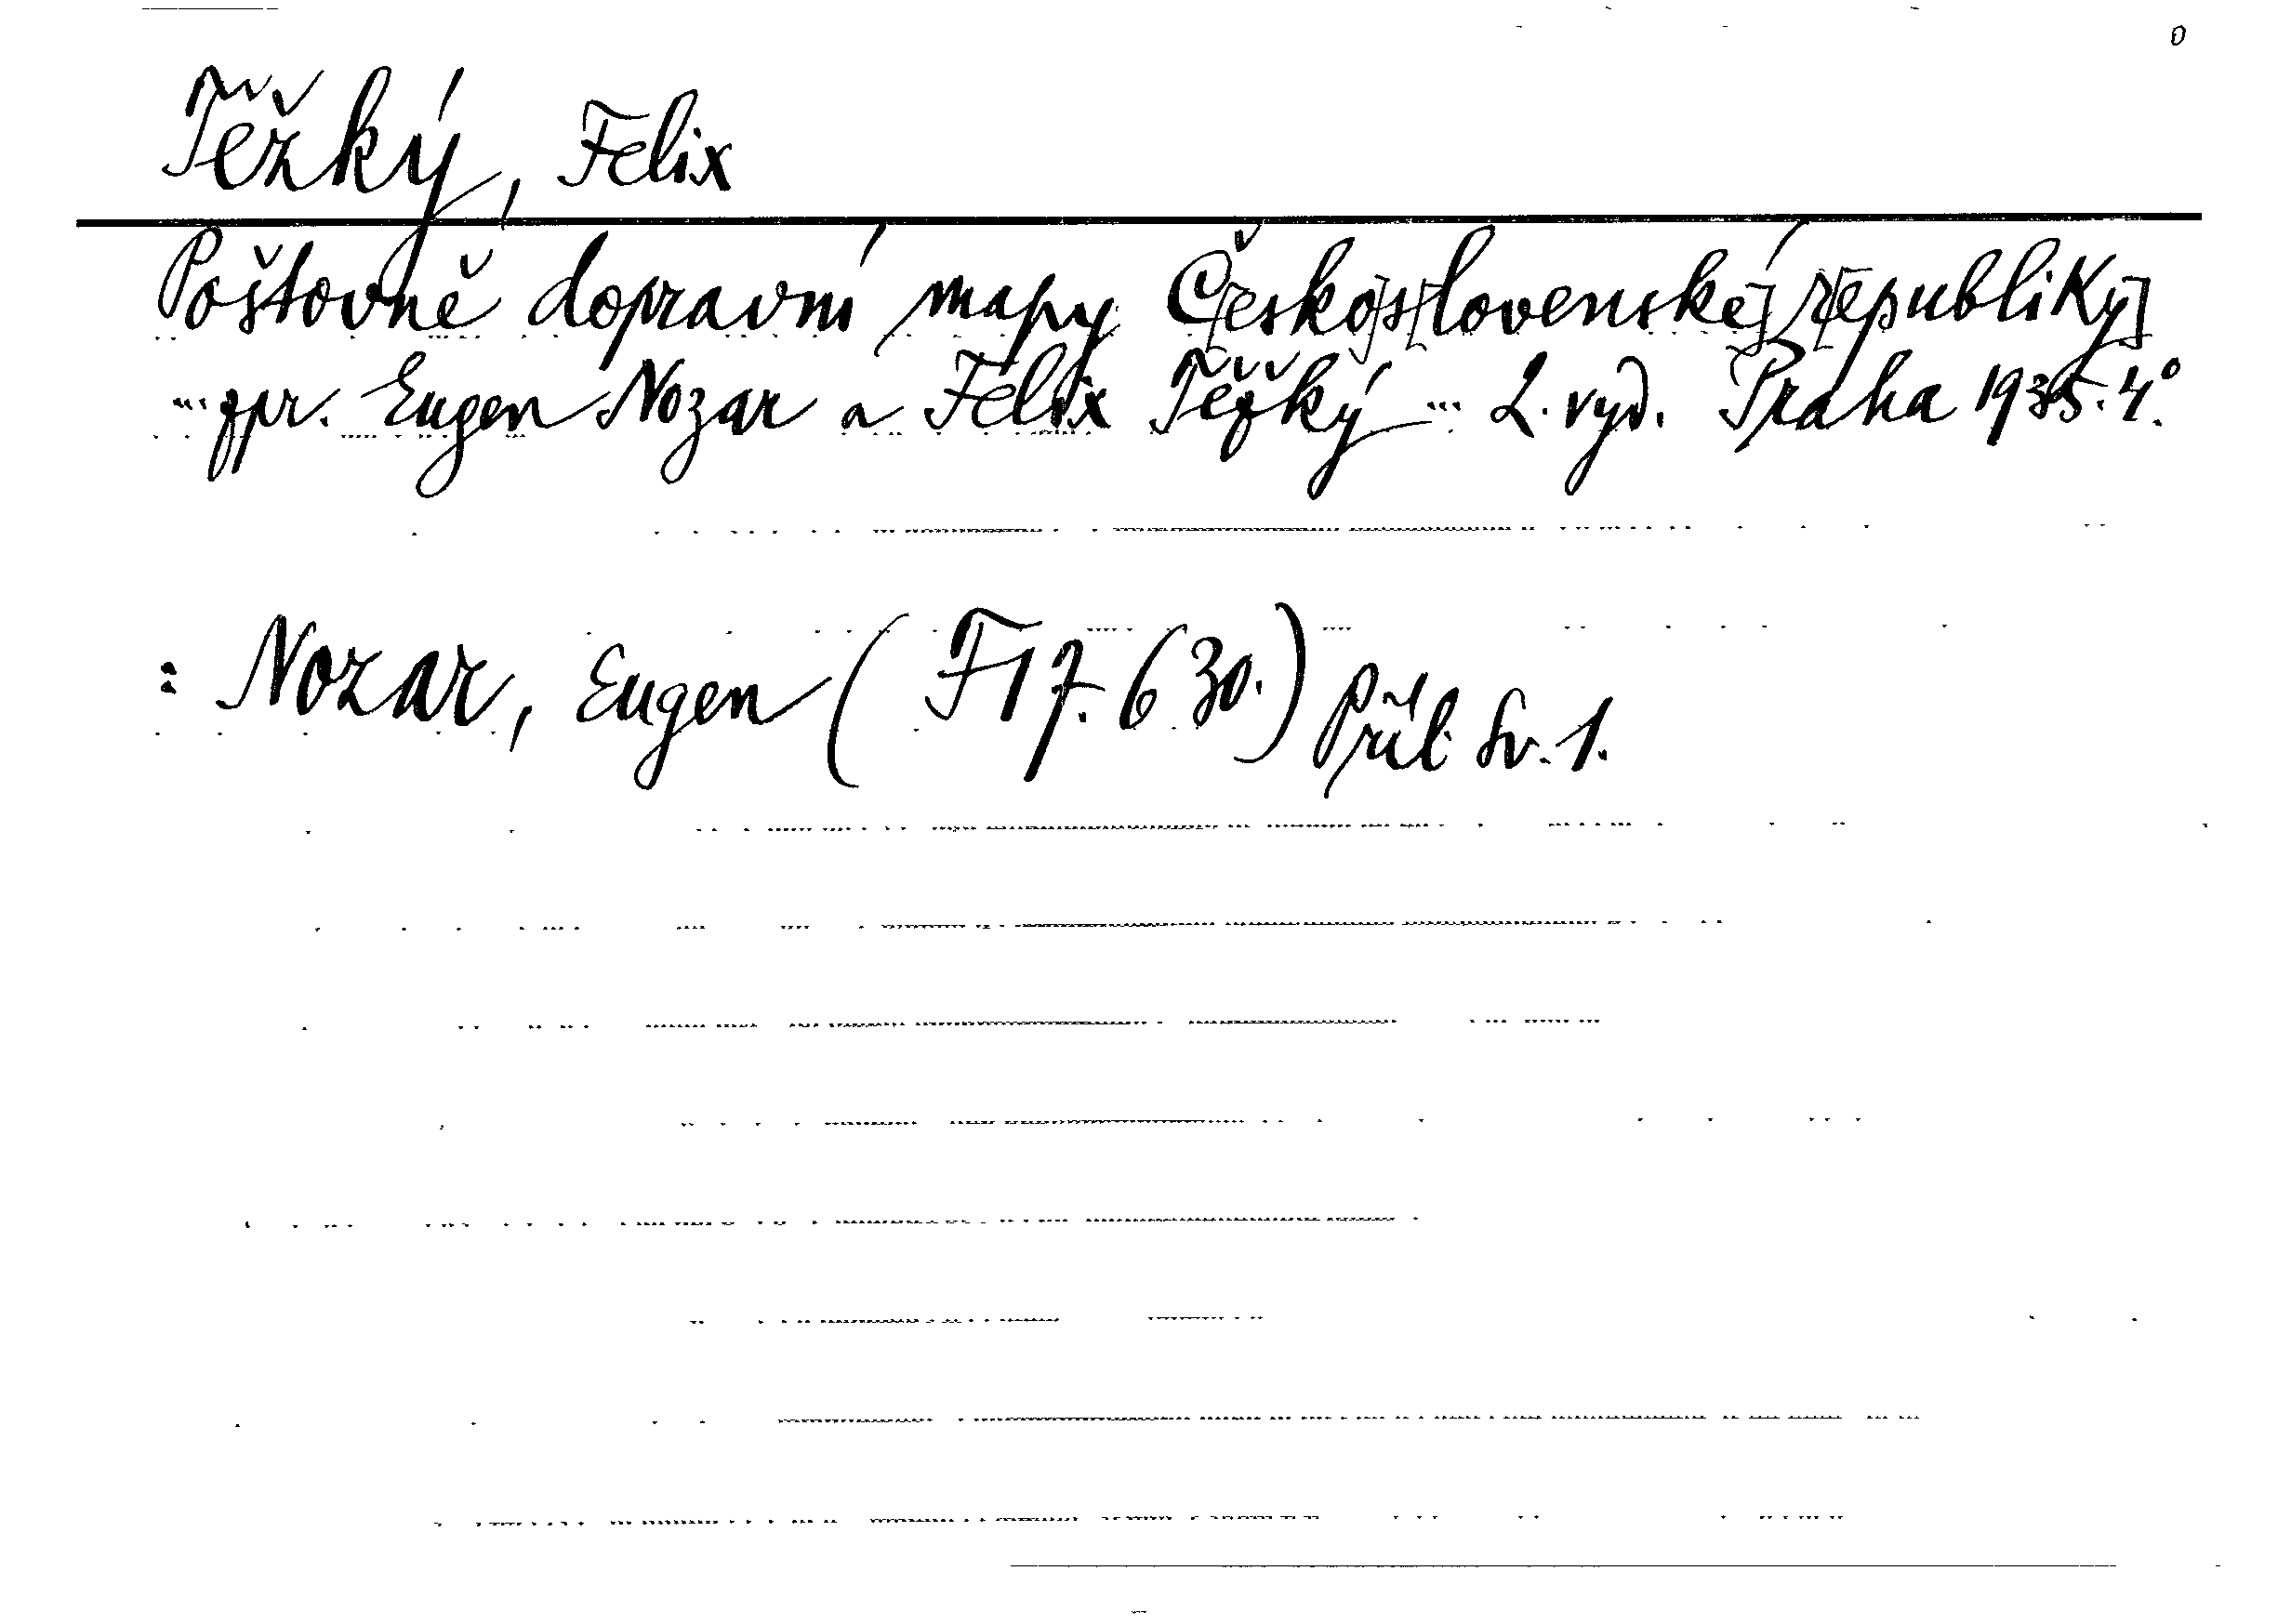 Těžký, Felix
Poštovně dopravní mapy Č[esko]s[lovenské] r[epubliky]
... zpr. Eugen Nozar a Felix Těžký ... 2. vyd. Praha 1935. 4°.
: Nozar, Eugen (F 17.630.) Příl. Sv. 1.